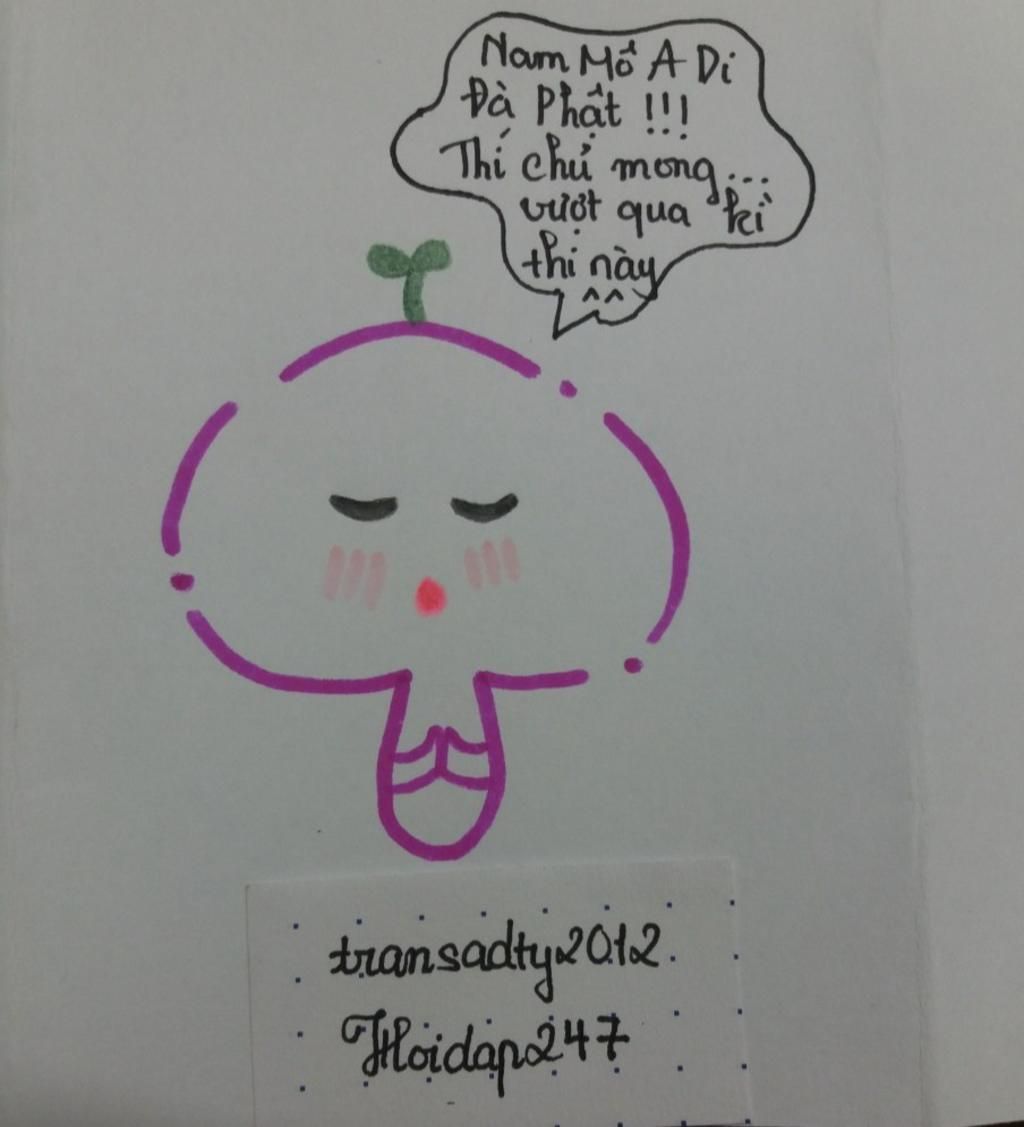 Nam Mô A Di
Đà Phật !!!
Thí chủ mong...
vượt qua kì
thi này
^^
transadty2012
Hoidap247